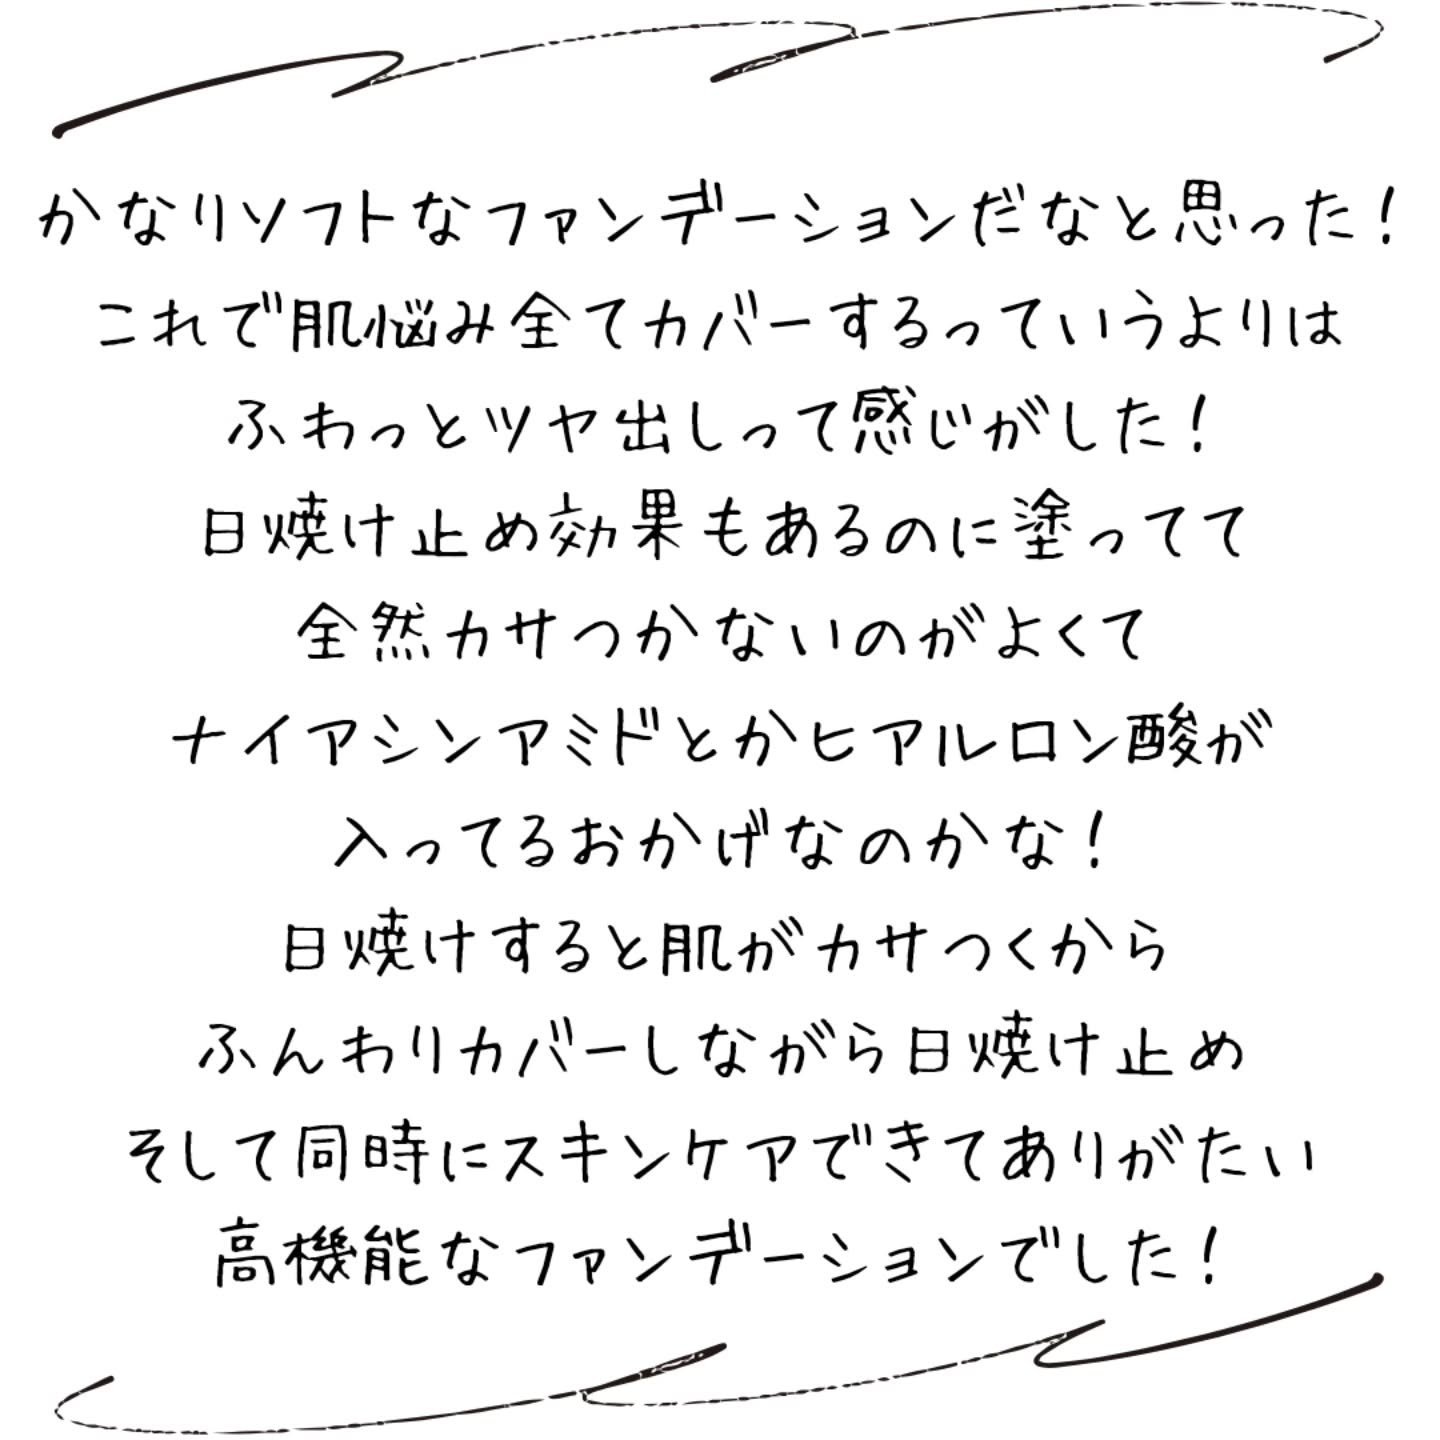 かなりソフトなファンデーションだなと思った！
これで肌悩み全てカバーするっていうよりは
ふわっとツヤ出しって感じがした！
日焼け止め効果もあるのに塗ってて
全然カサつかないのがよくて
ナイアシンアミドとかヒアルロン酸が
入ってるおかげなのかな！
日焼けすると肌がカサつくから
ふんわりカバーしながら日焼け止め
そして同時にスキンケアできてありがたい
高機能なファンデーションでした！